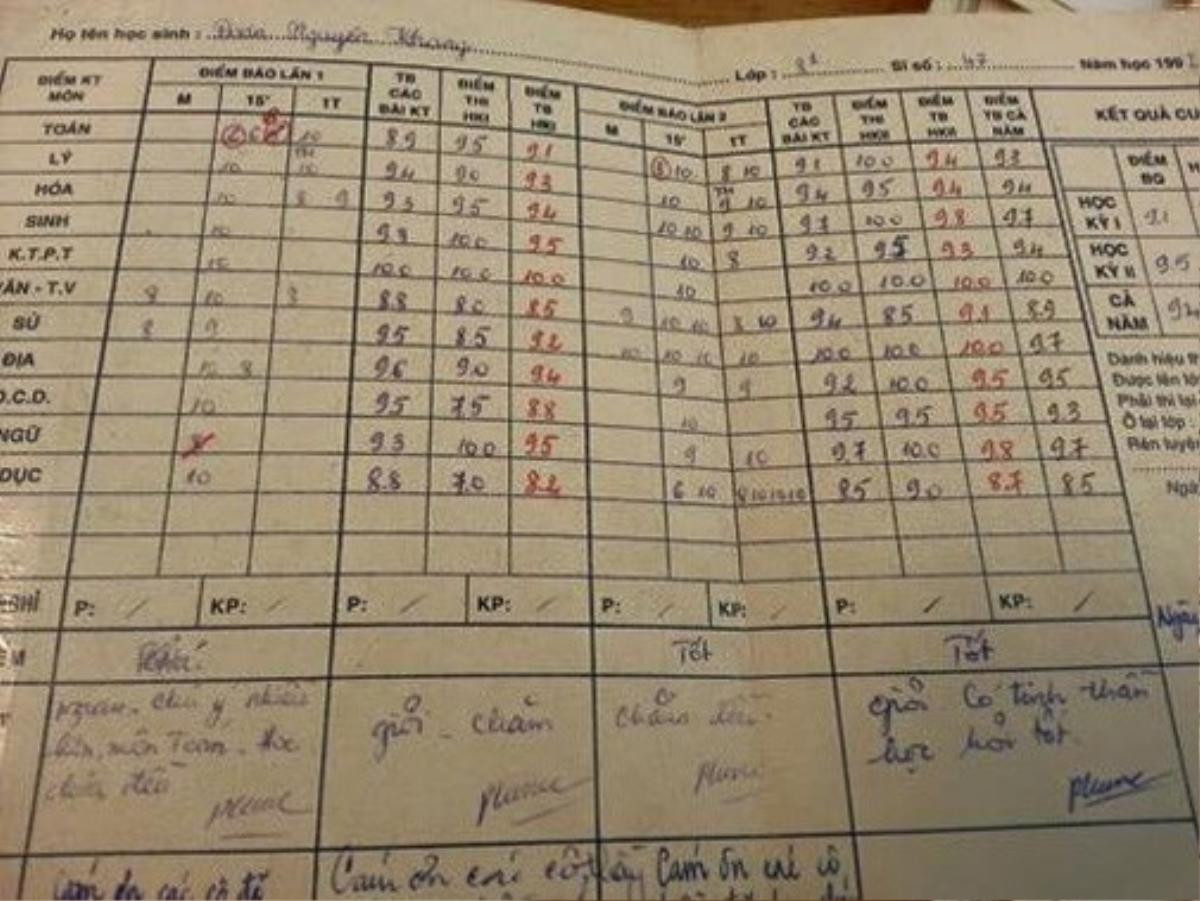 Họ tên học sinh : Đoàn Nguyên Khang Lớp : 8¹ Sĩ số : 47 Năm học 199
ĐIỂM KT MÔN ĐIỂM BÁO LẦN 1 TB CÁC BÀI KT ĐIỂM THI HKI ĐIỂM TB HKI ĐIỂM BÁO LẦN 2 TB CÁC BÀI KT ĐIỂM THI HKII ĐIỂM TB HKII ĐIỂM TB CẢ NĂM KẾT QUẢ CU
M 15' 1T M 15' 1T ĐIỂM BQ H
TOÁN 10 8.9 9.5 9.1 10 8 10 9.1 10.0 9.4 9.3
LÝ 10 TH 10 9.4 9.0 9.3 10 TH 9 10 9.4 9.5 9.4 9.4
HÓA 10 8 9 9.3 9.5 9.4 10 10 9 10 9.7 10.0 9.8 9.7
SINH 10 9.3 10.0 9.5 10 8 9.2 9.5 9.3 9.4
K.T.P.T 10 10.0 10.0 10.0 10 10.0 10.0 10.0 10.0
VĂN - T.V 8 10 8 8.8 8.0 8.5 9 10 10 8 10 9.4 8.5 9.1 8.9
SỬ 8 9 9.5 8.5 9.2 10 10 10 10 10.0 10.0 10.0 9.7
ĐỊA 10 8 9.6 9.0 9.4 9 9 9.2 10.0 9.5 9.5
.D.C.D. 10 9.5 7.5 8.8 10 9.5 9.5 9.5 9.3
NGỮ 9.3 10.0 9.5 9 10 9.7 10.0 9.8 9.7
DỤC 10 8.8 7.0 8.2 6 10 8 10 10 10 8.5 9.0 8.7 8.5
HỌC KỲ I 9.1
HỌC KỲ II 9.5
CẢ NĂM
Danh hiệu th
Được lên lớ
Phải thi lại
Ở lại lớp :
Rèn luyện
Ngà
GHỈ P: / KP: / P: / KP: / P: / KP: / P: / KP: /
ỂM Khá. Tốt Tốt
ngoan. chú ý nhiều
hơn, môn Toán. Học
chưa đều
giỏi. chăm
chăm đều.
giỏi Có tinh thần
học hỏi tốt.
Ngày
Cám ơn các cô đã
Cám ơn các cô,
Cám ơn các cô,